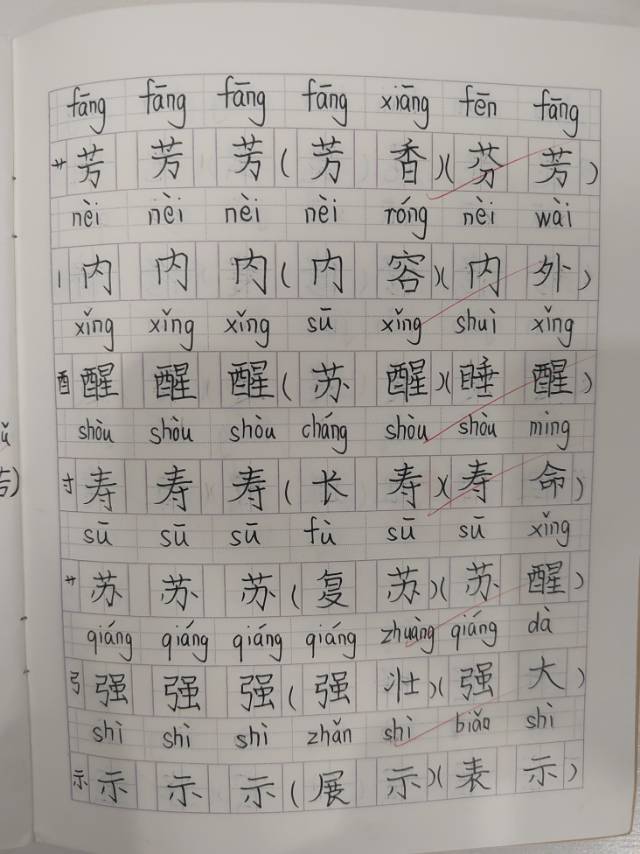 fāng fāng fāng fāng xiāng fēn fāng
艹 芳 芳 芳(芳 香)(芬 芳)
nèi nèi nèi nèi róng nèi wài
丨 内 内 内(内 容)(内 外)
xǐng xǐng xǐng sū xǐng shuì xǐng
酉 醒 醒 醒(苏 醒)(睡 醒)
shòu shòu shòu cháng shòu shòu mìng
寸 寿 寿 寿(长 寿)(寿 命)
sū sū sū fù sū sū xǐng
艹 苏 苏 苏(复 苏)(苏 醒)
qiáng qiáng qiáng qiáng zhuàng qiáng dà
弓 强 强 强(强 壮)(强 大)
shì shì shì zhǎn shì biǎo shì
示 示 示 示(展 示)(表 示)